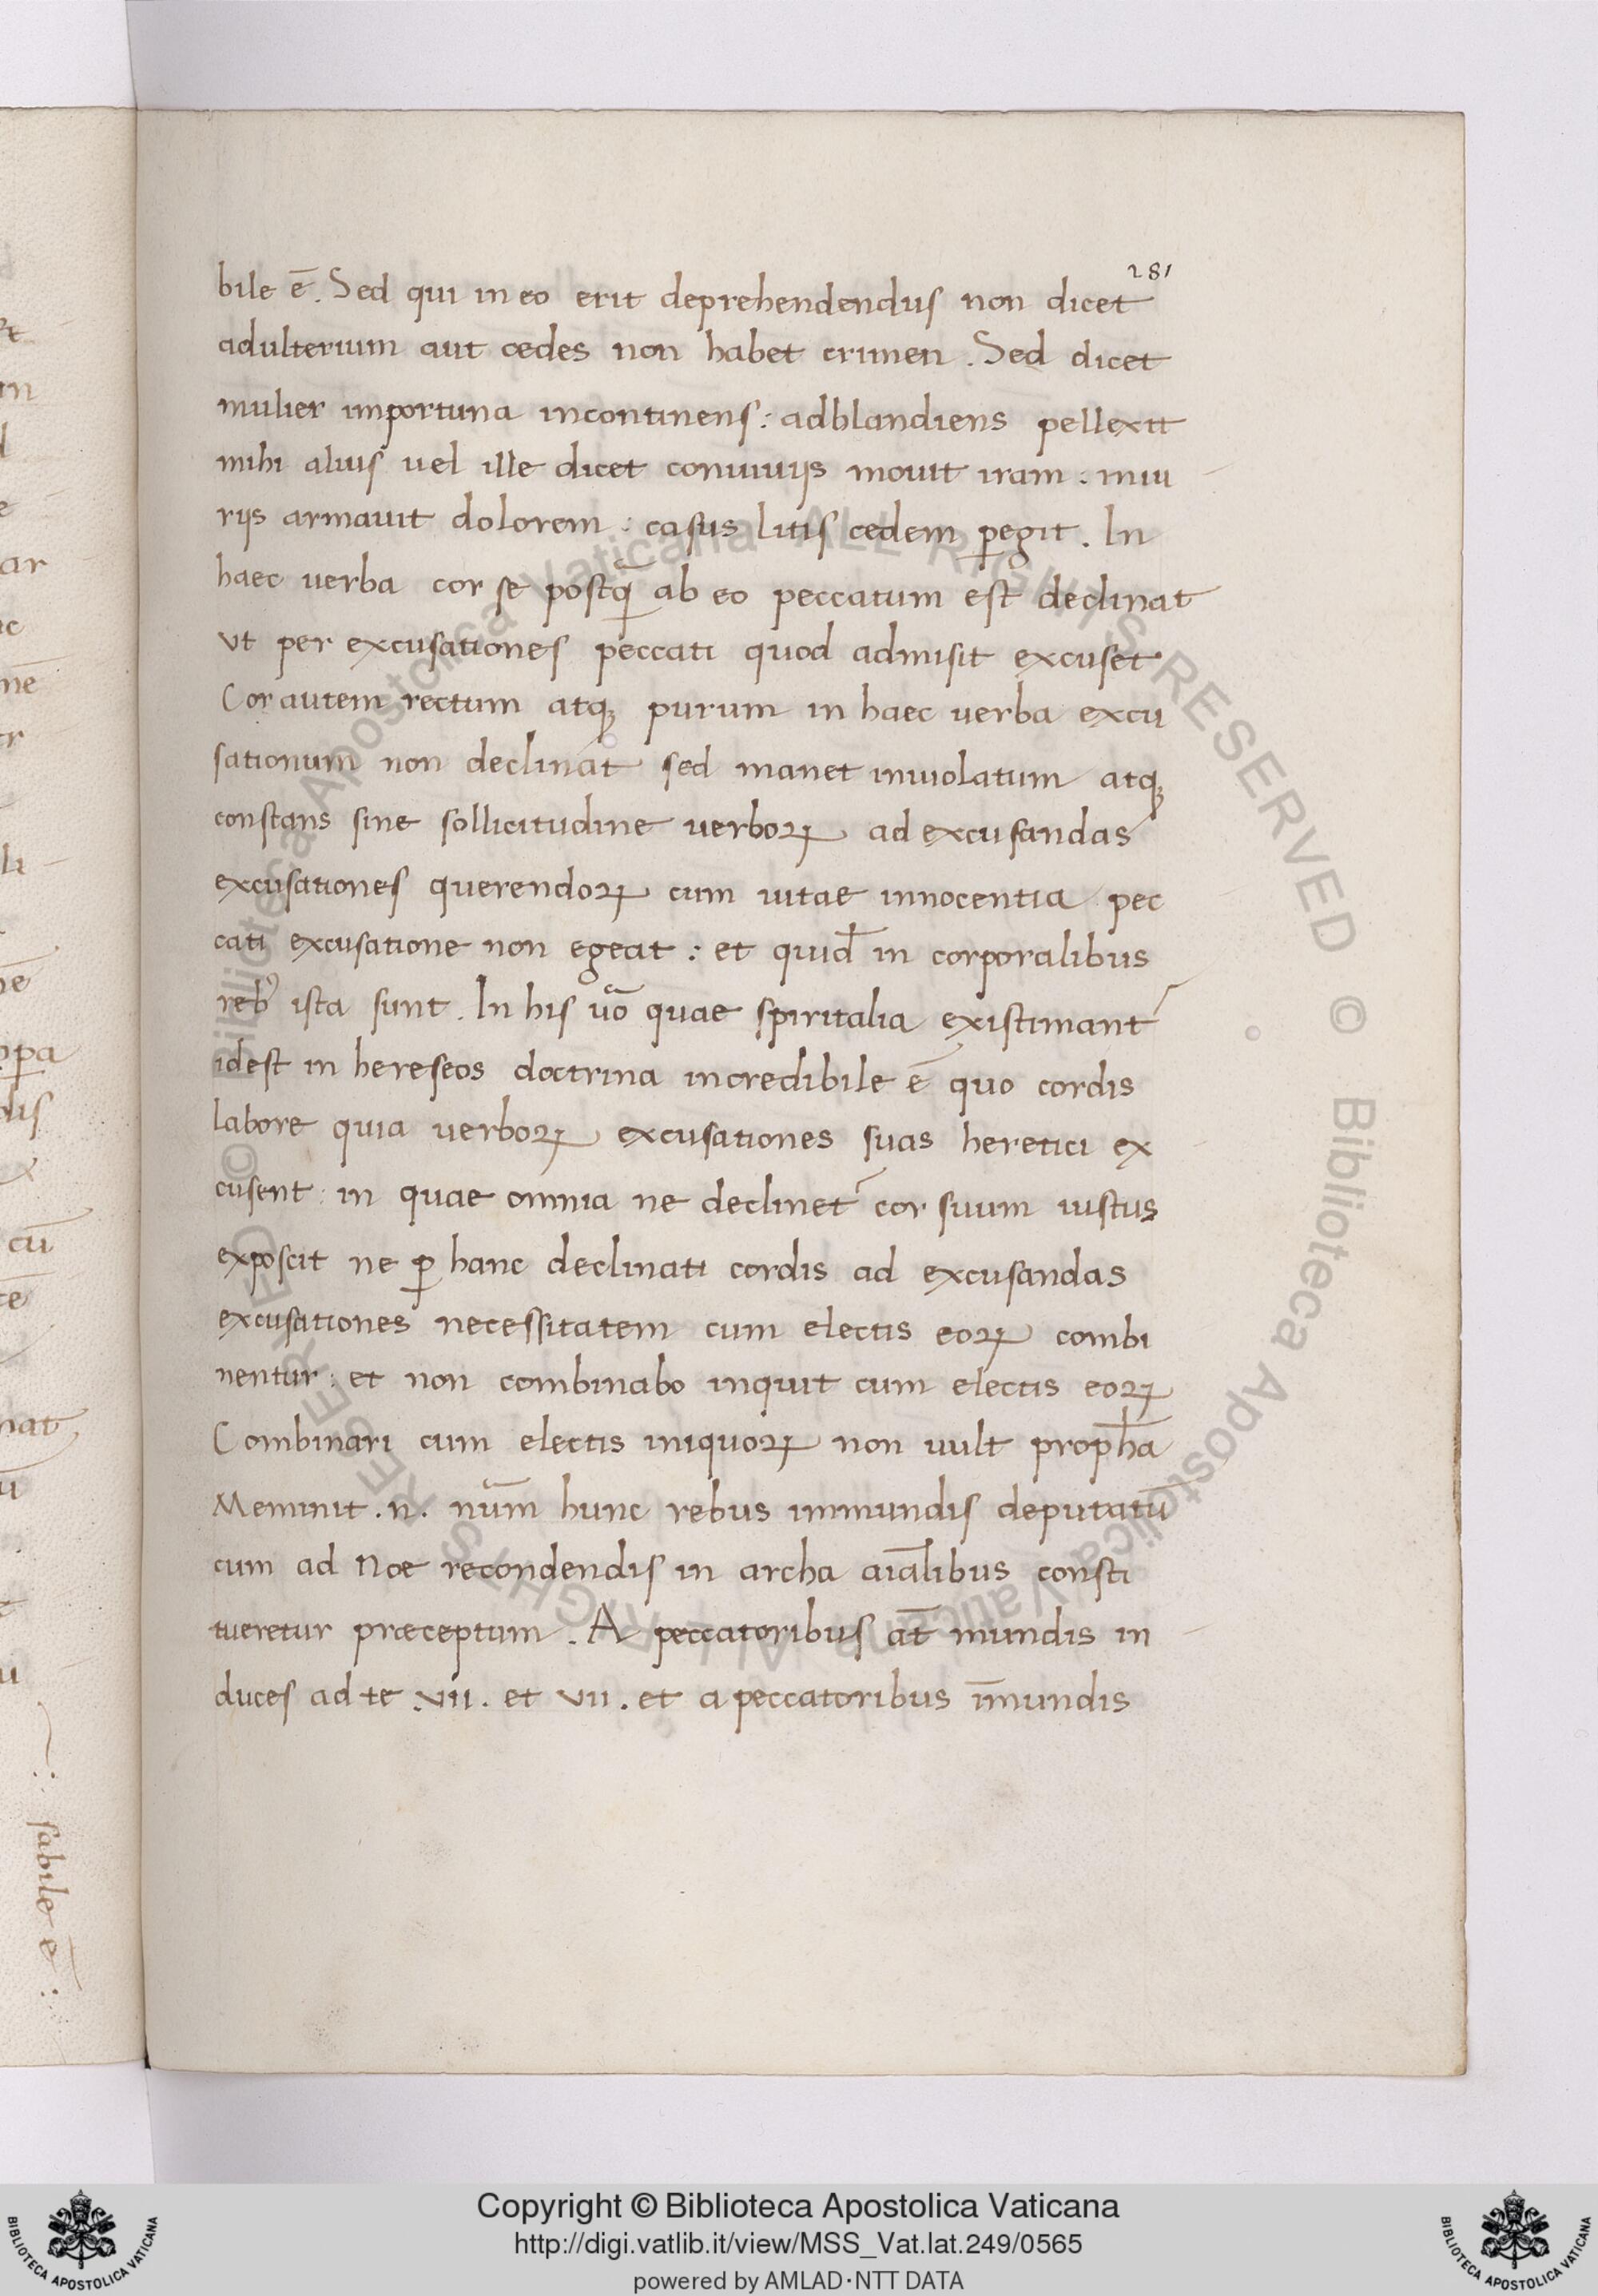 281
bile ē. Sed qui in eo erit deprehendendus non dicet
adulterium aut cedes non habet crimen. Sed dicet
mulier importuna incontinens: adblandiens pellexit
mihi aluis uel ille dicet conuiuijs mouit iram: iniu
rijs armauit dolorem: casus litis cedem ꝑegit. In
haec uerba cor se postq̃ ab eo peccatum est declinat
ut per excusationes peccati quod admisit excuset
Cor autem rectum atqꝫ purum in haec uerba excu
sationum non declinat sed manet inuiolatum atqꝫ
constans sine sollicitudine uerboꝝ ad excusandas
excusationes querendoꝝ cum uitae innocentia pec
cati excusatione non egeat: et quid̄ in corporalibus
reb᾽ ista sunt. In his uō quae spiritalia existimant᾽
idest in hereseos doctrina incredibile ē quo cordis
labore quia uerboꝝ excusationes suas heretici ex
cusent: in quae omnia ne declinet᾽ cor suum iustus
exposcit ne ꝑ hanc declinati cordis ad excusandas
excusationes necessitatem cum electis eoꝝ combi
nentur: et non combinabo inquit cum electis eoꝝ
Combinari cum electis iniquoꝝ non uult proph̄a
Meminit .n. nūm hunc rebus immundis deputatū
cum ad Noe recondendis in archa aīalibus consti
tueretur præceptum. A peccatoribus at̄ mundis in
duces ad te .VII. et VII. et a peccatoribus īmundis
ꝑa
dis
ex
cū
nat
sabile ē:
Copyright © Biblioteca Apostolica Vaticana
http://digi.vatlib.it/view/MSS_Vat.lat.249/0565
powered by AMLAD·NTT DATA
BIBLIOTECA APOSTOLICA VATICANA
BIBLIOTECA APOSTOLICA VATICANA